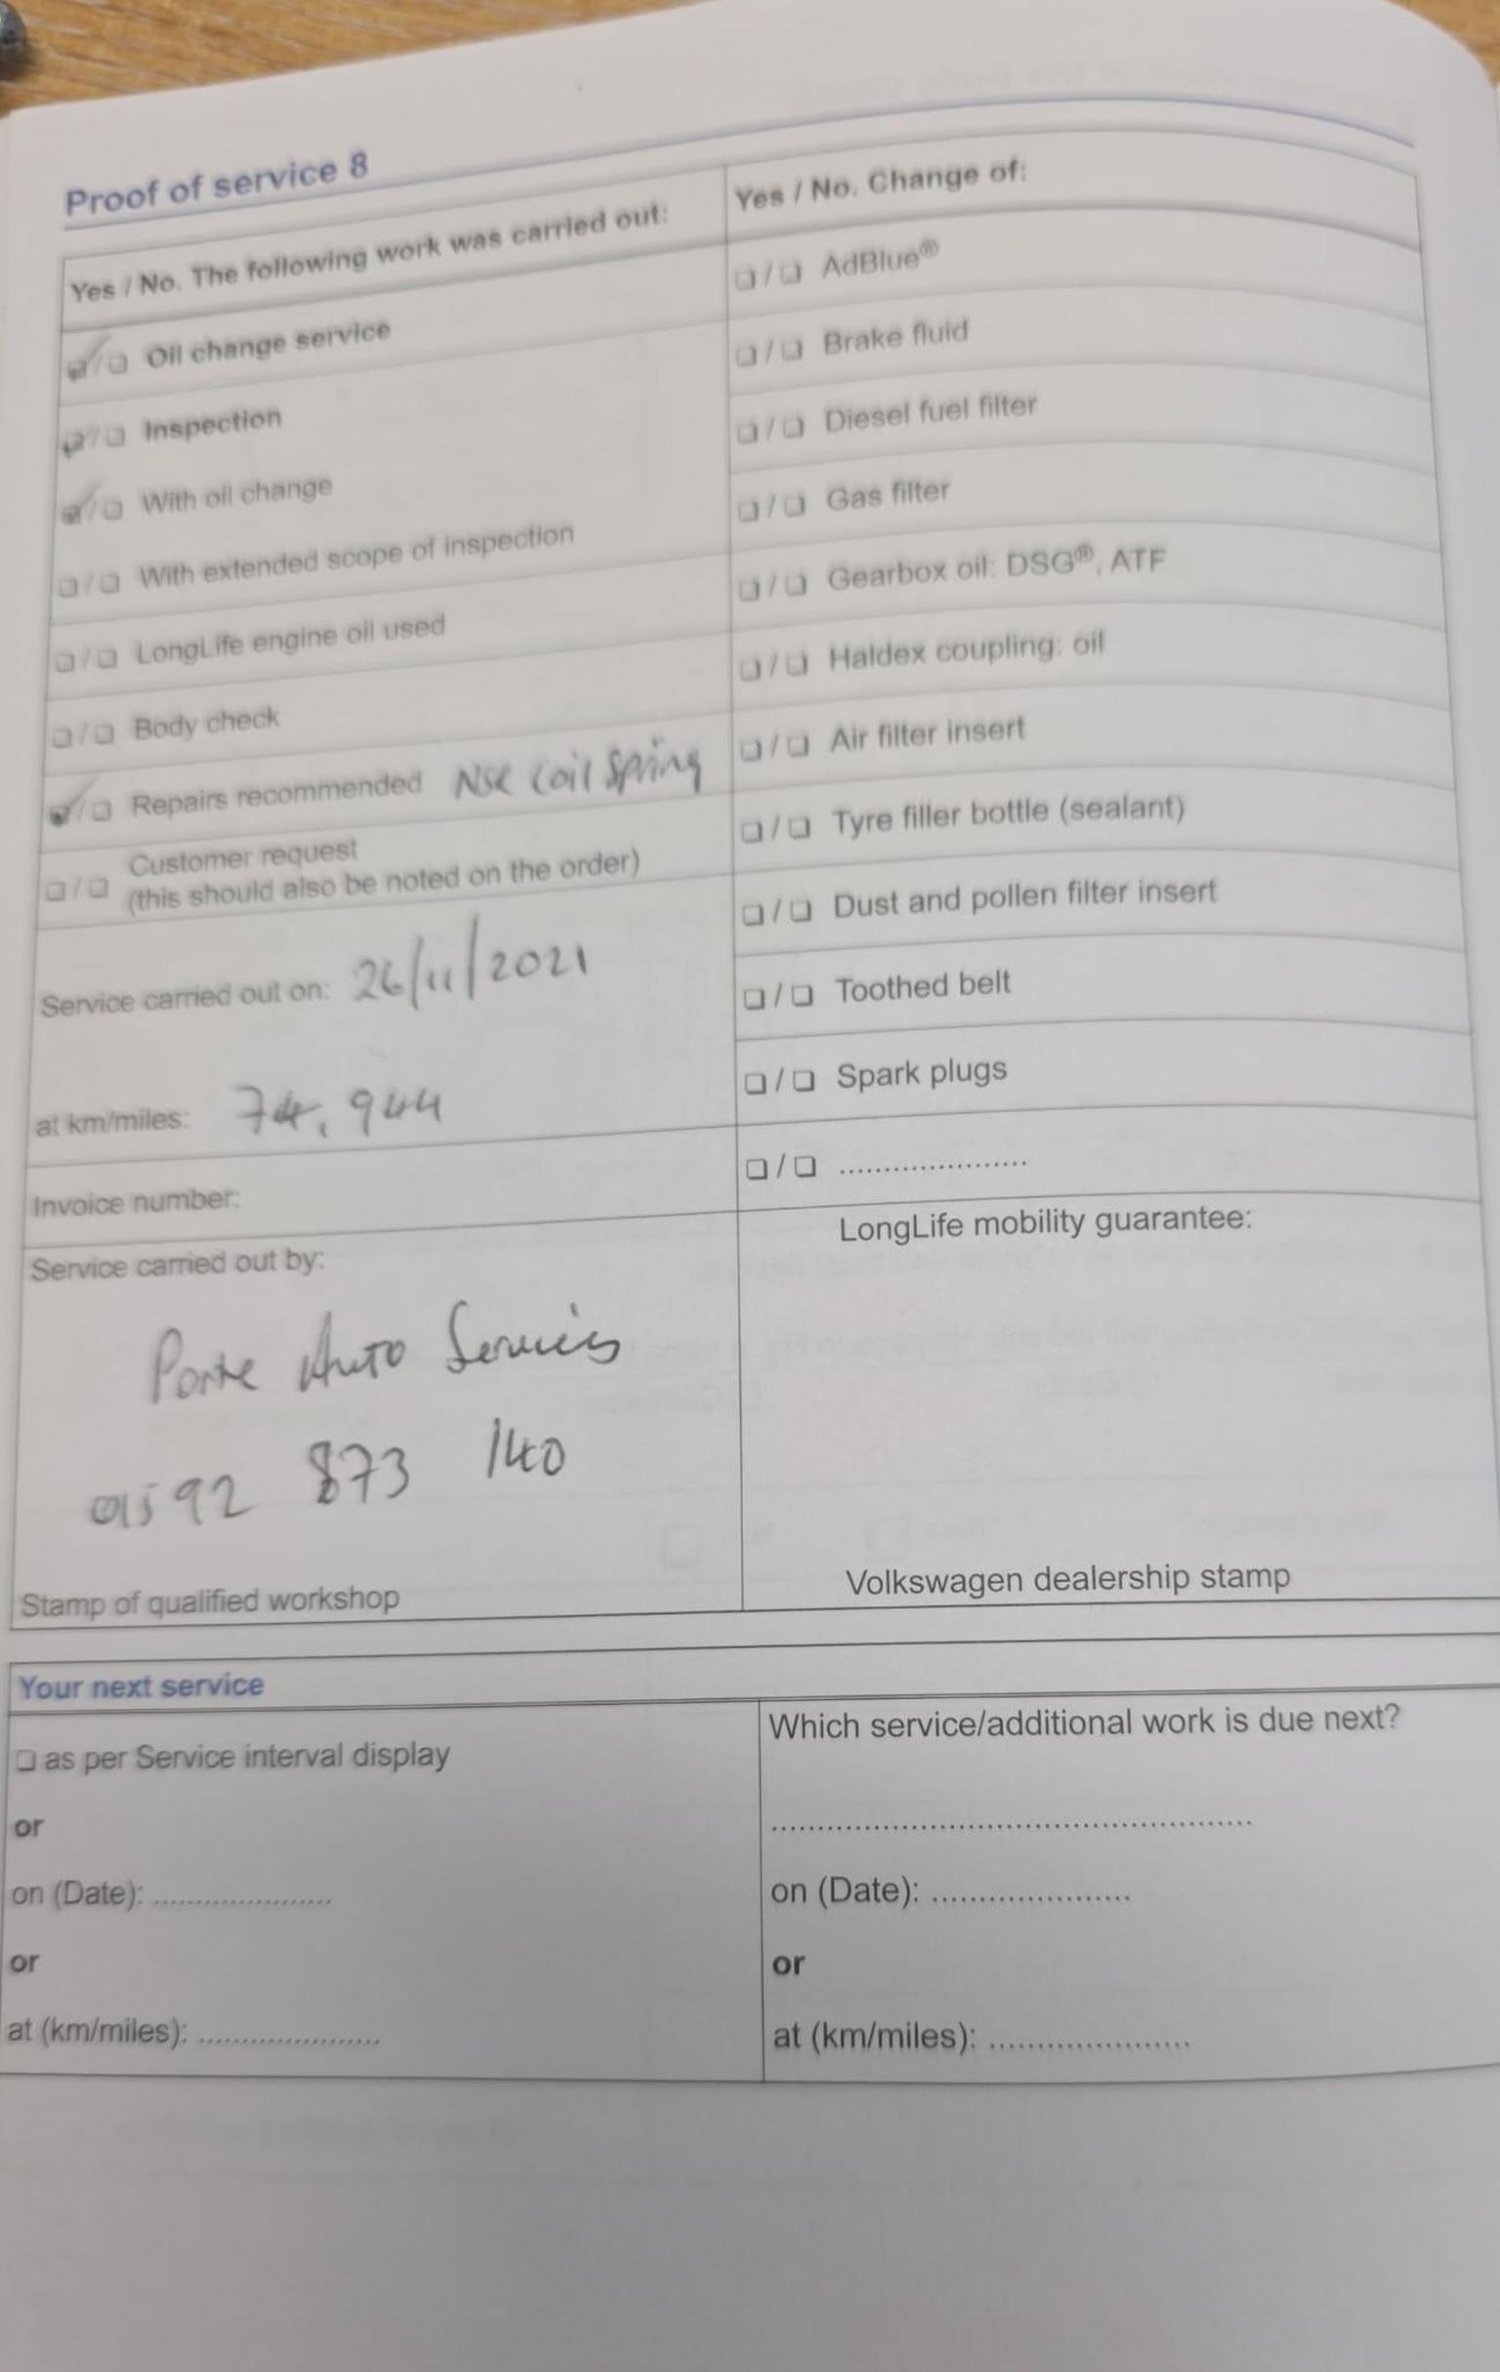 Proof of service 8
Yes / No. The following work was carried out:
☑/❑ Oil change service
☑/❑ Inspection
☑/❑ With oil change
❑/❑ With extended scope of inspection
❑/❑ LongLife engine oil used
❑/❑ Body check
☑/❑ Repairs recommended NSR coil spring
❑/❑ Customer request
(this should also be noted on the order)
Service carried out on: 26/11/2021
at km/miles: 74,944
Invoice number:
Service carried out by:
Auto Services
01592 873 140
Stamp of qualified workshop
Yes / No. Change of:
❑/❑ AdBlue®
❑/❑ Brake fluid
❑/❑ Diesel fuel filter
❑/❑ Gas filter
❑/❑ Gearbox oil: DSG®, ATF
❑/❑ Haldex coupling: oil
❑/❑ Air filter insert
❑/❑ Tyre filler bottle (sealant)
❑/❑ Dust and pollen filter insert
❑/❑ Toothed belt
❑/❑ Spark plugs
❑/❑ ......................
LongLife mobility guarantee:
Volkswagen dealership stamp
Your next service
❑ as per Service interval display
or
on (Date): ......................
or
at (km/miles): ......................
Which service/additional work is due next?
......................................................
on (Date): ......................
or
at (km/miles): ......................